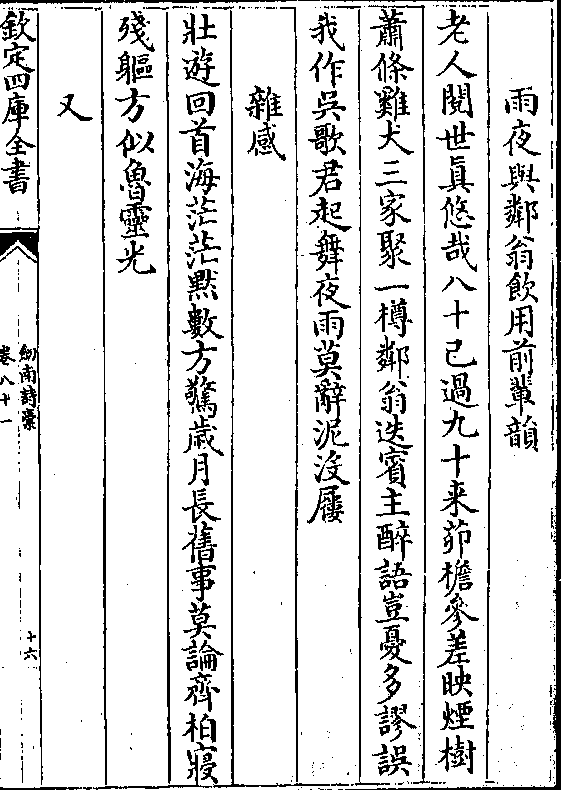 雨夜與鄰翁飲用前輩韻
老人閱世真悠哉八十已過九十来茆檐參差映煙樹
蕭條雞犬三家聚一樽鄰翁迭賓主醉語豈憂多謬誤
我作吳歌君起舞夜雨莫辭泥没屨
雜感
壯遊回首海茫茫黙數方驚歳月長舊事莫論齊柏寢
殘軀方似魯靈光
又
欽定四庫全書
劒南詩藁
卷八十一
十六